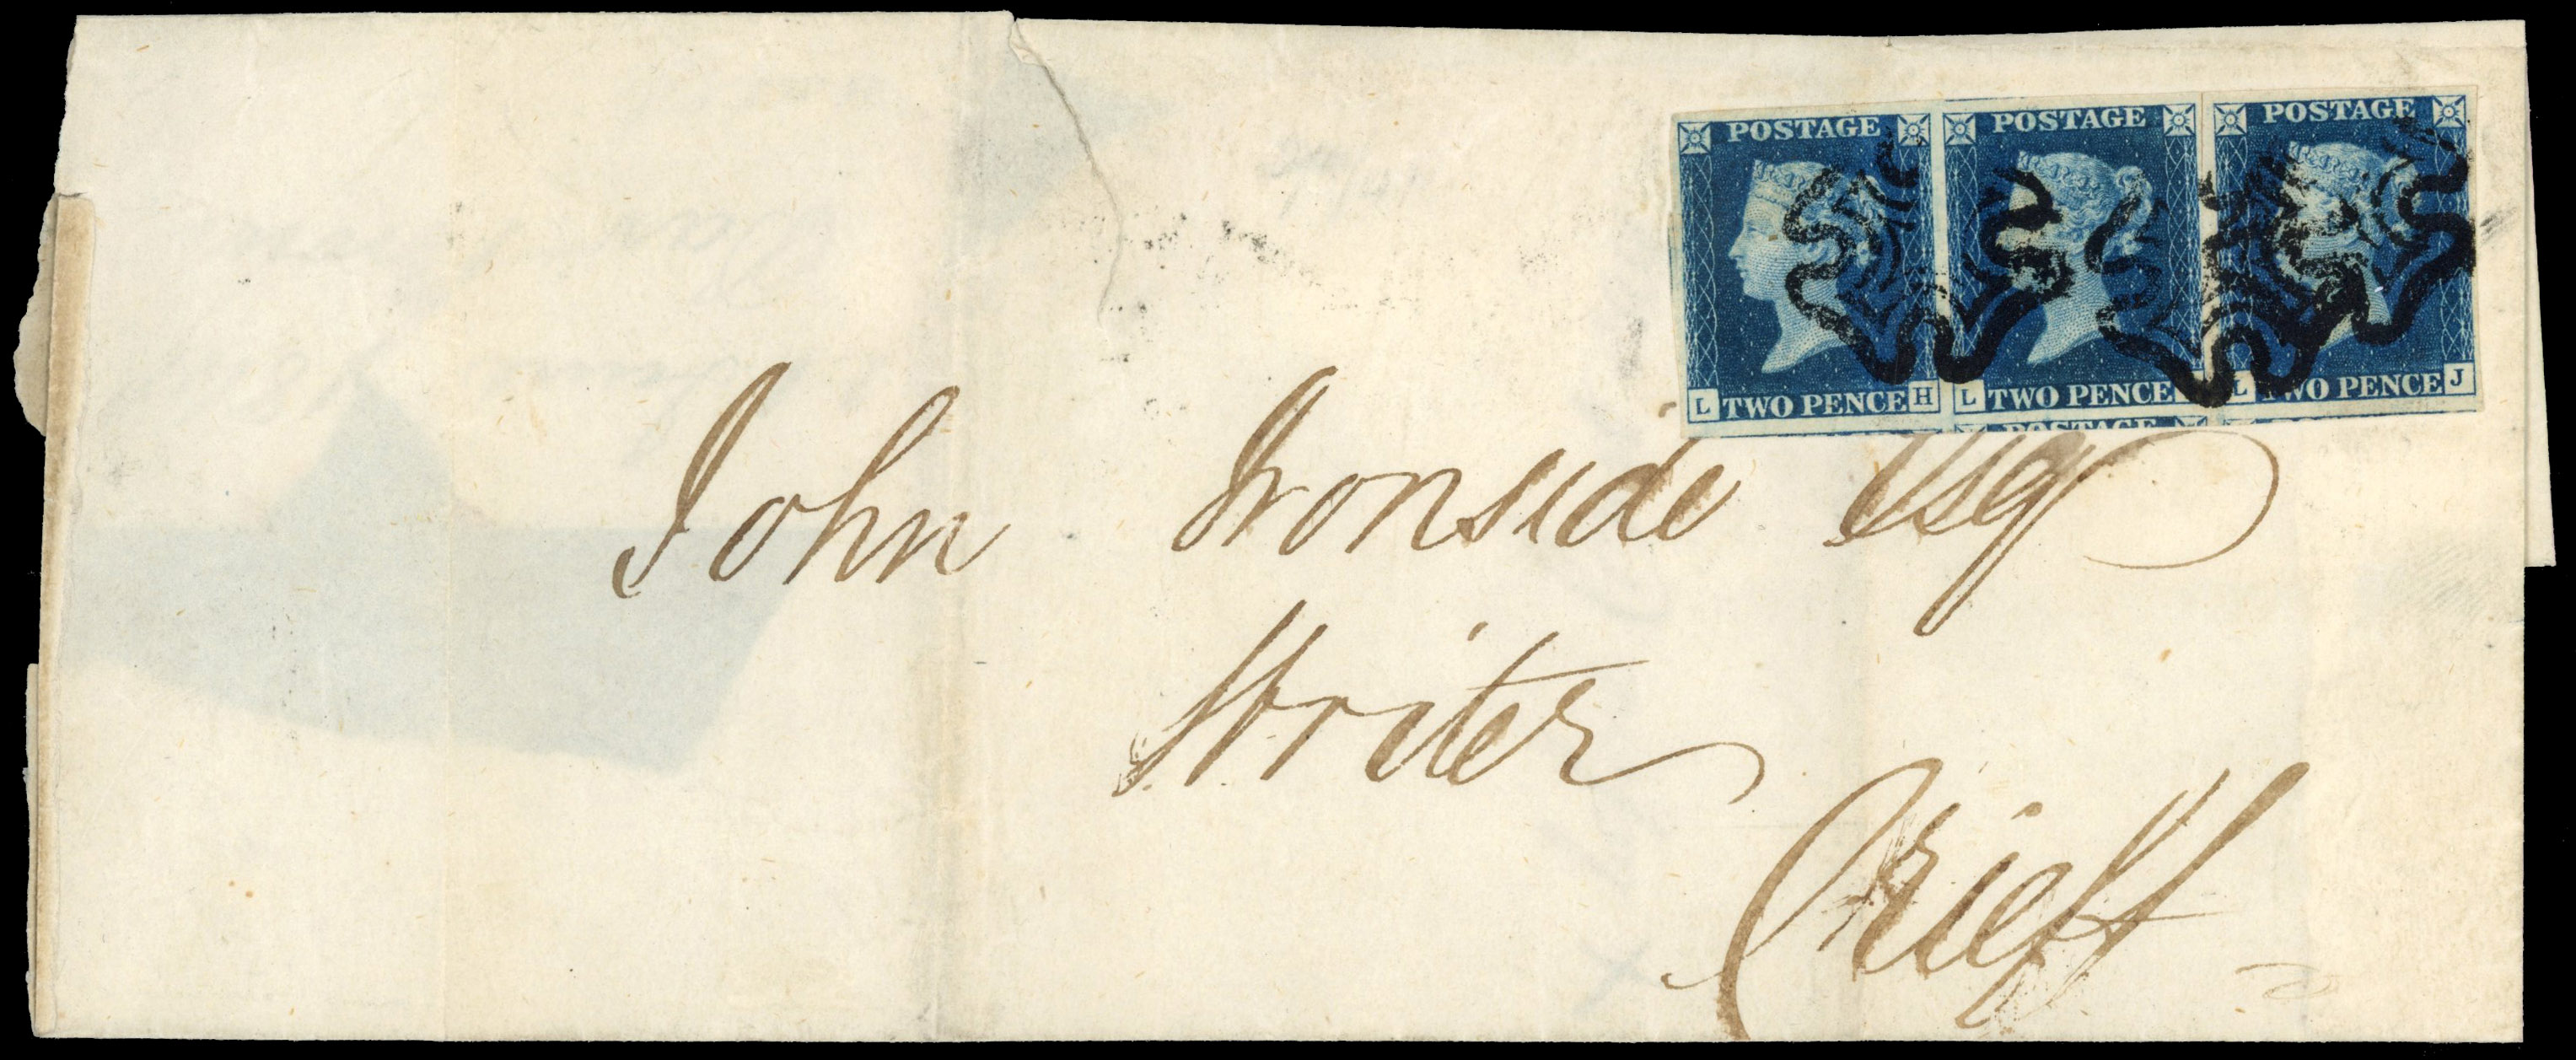 POSTAGE POSTAGE POSTAGE
L TWO PENCE H L TWO PENCE L TWO PENCE J
POSTAGE
John Ironside Esq
Writer
Crieff